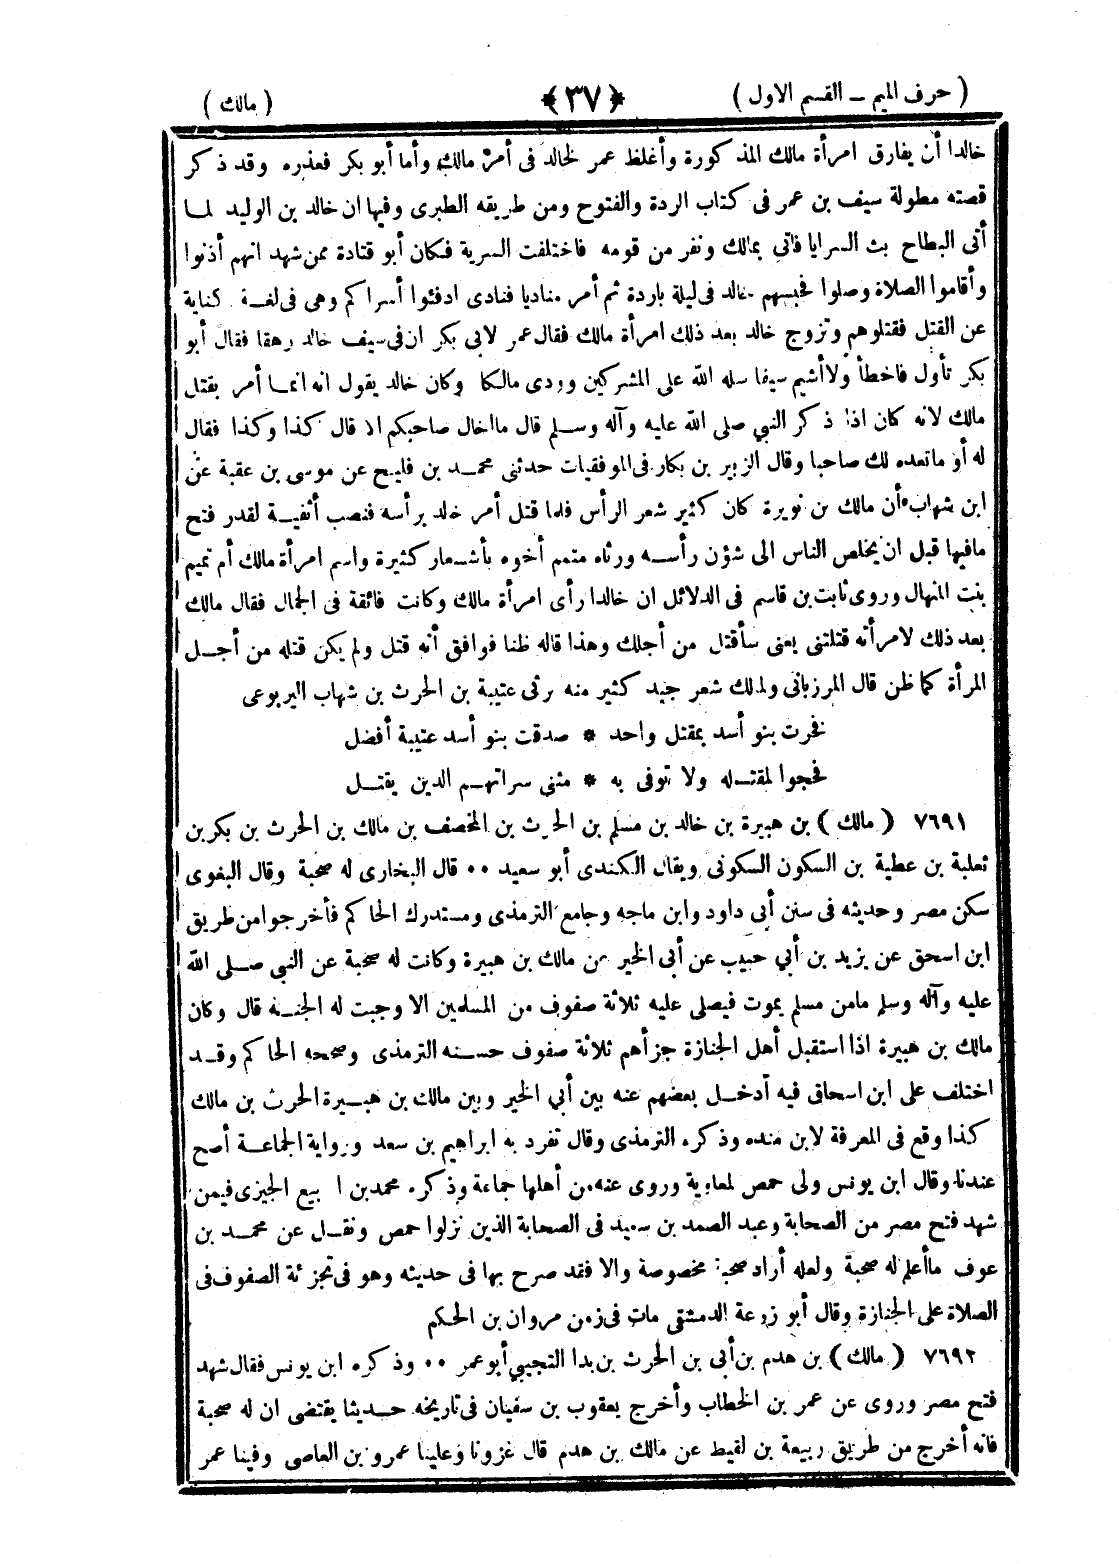 ( حرف الميم ــ القسم الاول ) ﴿٣٧﴾ ( مالك )
خالدا أن يفارق امرأة مالك المذكورة وأغلظ عمر لخالد فى أمر مالك وأما أبو بكر فعذره وقد ذكر
قصته مطولة سيف بن عمر فى كتاب الردة والفتوح ومن طريقه الطبرى وفيها ان خالد بن الوليد لما
أتى البطاح بث السرايا فاتى بمالك ونفر من قومه فاختلفت السرية فكان أبو قتادة ممن شهد انهم أذنوا
وأقاموا الصلاة وصلوا فحبسهم خالد فى ليلة باردة ثم أمر مناديا فنادى ادفئوا أسراكم وهى فى لغة كناية
عن القتل فقتلوهم وتزوج خالد بعد ذلك امرأة مالك فقال عمر لابى بكر ان فى سيف خالد رهقا فقال أبو
بكر تأول فاخطأ ولا أشيم سيفا سله الله على المشركين وودى مالكا وكان خالد يقول انه انما أمر بقتل
مالك لانه كان اذا ذكر النبي صلى الله عليه وآله وسلم قال ما اخال صاحبكم الا قال كذا وكذا فقال
له أو ما تعده لك صاحبا وقال الزبير بن بكار فى الموفقيات حدثنى محمد بن فليح عن موسى بن عقبة عن
ابن شهاب أن مالك بن نويرة كان كثير شعر الرأس فلما قتل أمر خالد برأسه فنصب أثفية لقدر فنضج
مافيها قبل ان يخلص الناس الى شؤن رأسه ورثاه متمم أخوه بأشعار كثيرة واسم امرأة مالك أم تميم
بنت المنهال وروى ثابت بن قاسم فى الدلائل ان خالدا رأى امرأة مالك وكانت فائقة فى الجمال فقال مالك
بعد ذلك لامرأته قتلتنى يعنى سأقتل من أجلك وهذا قاله ظنا فوافق أنه قتل ولم يكن قتله من أجل
المرأة كما ظن قال المرزبانى ولمالك شعر جيد كثير منه يرثى عتيبة بن الحرث بن شهاب اليربوعى
فخرت بنو أسد بمقتل واحد * صدقت بنو أسد عتيبة أفضل
فحجوا لمقتله ولا توفى به * مثنى سراتهم الذين يقتل
٧٦٩١ ( مالك ) بن هبيرة بن خالد بن مسلم بن الحرث بن المخصف بن مالك بن الحرث بن بكر بن
ثعلبة بن عطية بن السكون السكونى ويقال الكندى أبو سعيد ٠٠ قال البخارى له صحبة وقال البغوى
سكن مصر وحديثه فى سنن أبى داود وابن ماجه وجامع الترمذى ومستدرك الحاكم فأخرجوا من طريق
ابن اسحق عن يزيد بن أبي حبيب عن أبى الخير عن مالك بن هبيرة وكانت له صحبة عن النبي صلى الله
عليه وآله وسلم مامن مسلم يموت فيصلى عليه ثلاثة صفوف من المسلمين الا وجبت له الجنة قال وكان
مالك بن هبيرة اذا استقبل أهل الجنازة جزأهم ثلاثة صفوف حسنه الترمذى وصححه الحاكم وقد
اختلف على ابن اسحاق فيه أدخل بعضهم عنه بين أبي الخير وبين مالك بن هبيرة الحرث بن مالك
كذا وقع فى المعرفة لابن منده وذكره الترمذى وقال تفرد به ابراهيم بن سعد ورواية الجماعة أصح
عندنا وقال ابن يونس ولى حمص لمعاوية وروى عنه من أهلها جماعة وذكره محمد بن ا بيع الجيزى فيمن
شهد فتح مصر من الصحابة وعبد الصمد بن سعيد فى الصحابة الذين نزلوا حمص ونقل عن محمد بن
عوف ما أعلم له صحبة ولعله أراد صحبة مخصوصة والا فقد صرح بها فى حديثه وهو فى تجزئة الصفوف فى
الصلاة على الجنازة وقال أبو زرعة الدمشقى مات فى زمن مروان بن الحكم
٧٦٩٢ ( مالك ) بن هدم بن أبى بن الحرث بن بدا التجيبي أبو عمر ٠٠ وذكره ابن يونس فقال شهد
فتح مصر وروى عن عمر بن الخطاب وأخرج يعقوب بن سفيان فى تاريخه حديثا يقتضى ان له صحبة
فانه أخرج من طريق ربيعة بن لقيط عن مالك بن هدم قال غزونا وعلينا عمرو بن العاصى وفينا عمر